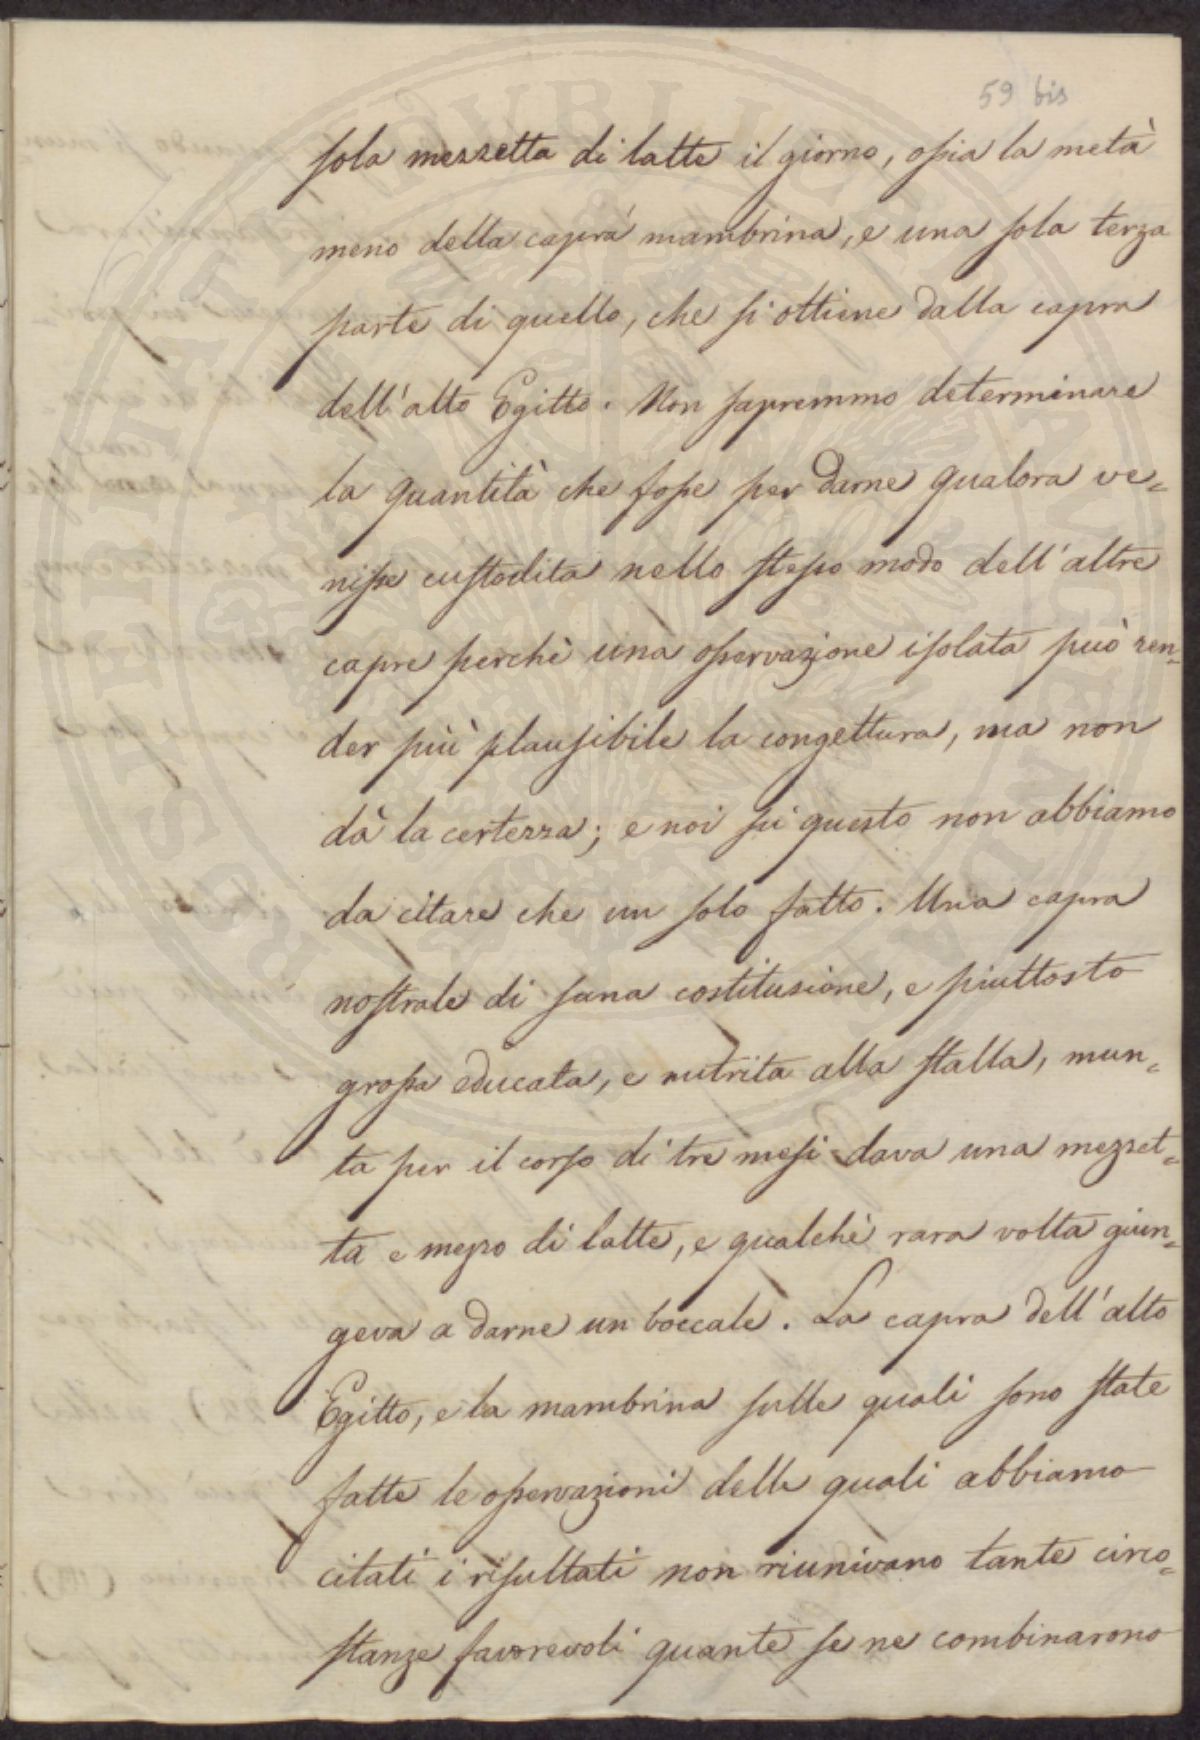 59 bis
sola mezzetta di latte il giorno, ossia la metà
meno della capra mambrina, e una sola terza
parte di quello, che si ottiene dalla capra
dell'alto Egitto. Non sapremmo determinare
la quantità che fosse per darne qualora ve=
nisse custodita nello stesso modo dell'altre
capre perchè una osservazione isolata può ren=
der più plausibile la congettura, ma non
dà la certezza; e noi su questo non abbiamo
da citare che un solo fatto. Una capra
nostrale di sana costituzione, e piuttosto
grossa educata, e nutrita alla stalla, mun=
ta per il corso di tre mesi dava una mezzet=
ta e mezzo di latte, e qualchè rara volta giun=
geva a darne un boccale. La capra dell'alto
Egitto, e la mambrina sulle quali sono state
fatte le osservazioni delle quali abbiamo
citati i risultati non riunivano tante circo=
stanze favorevoli quante se ne combinarono